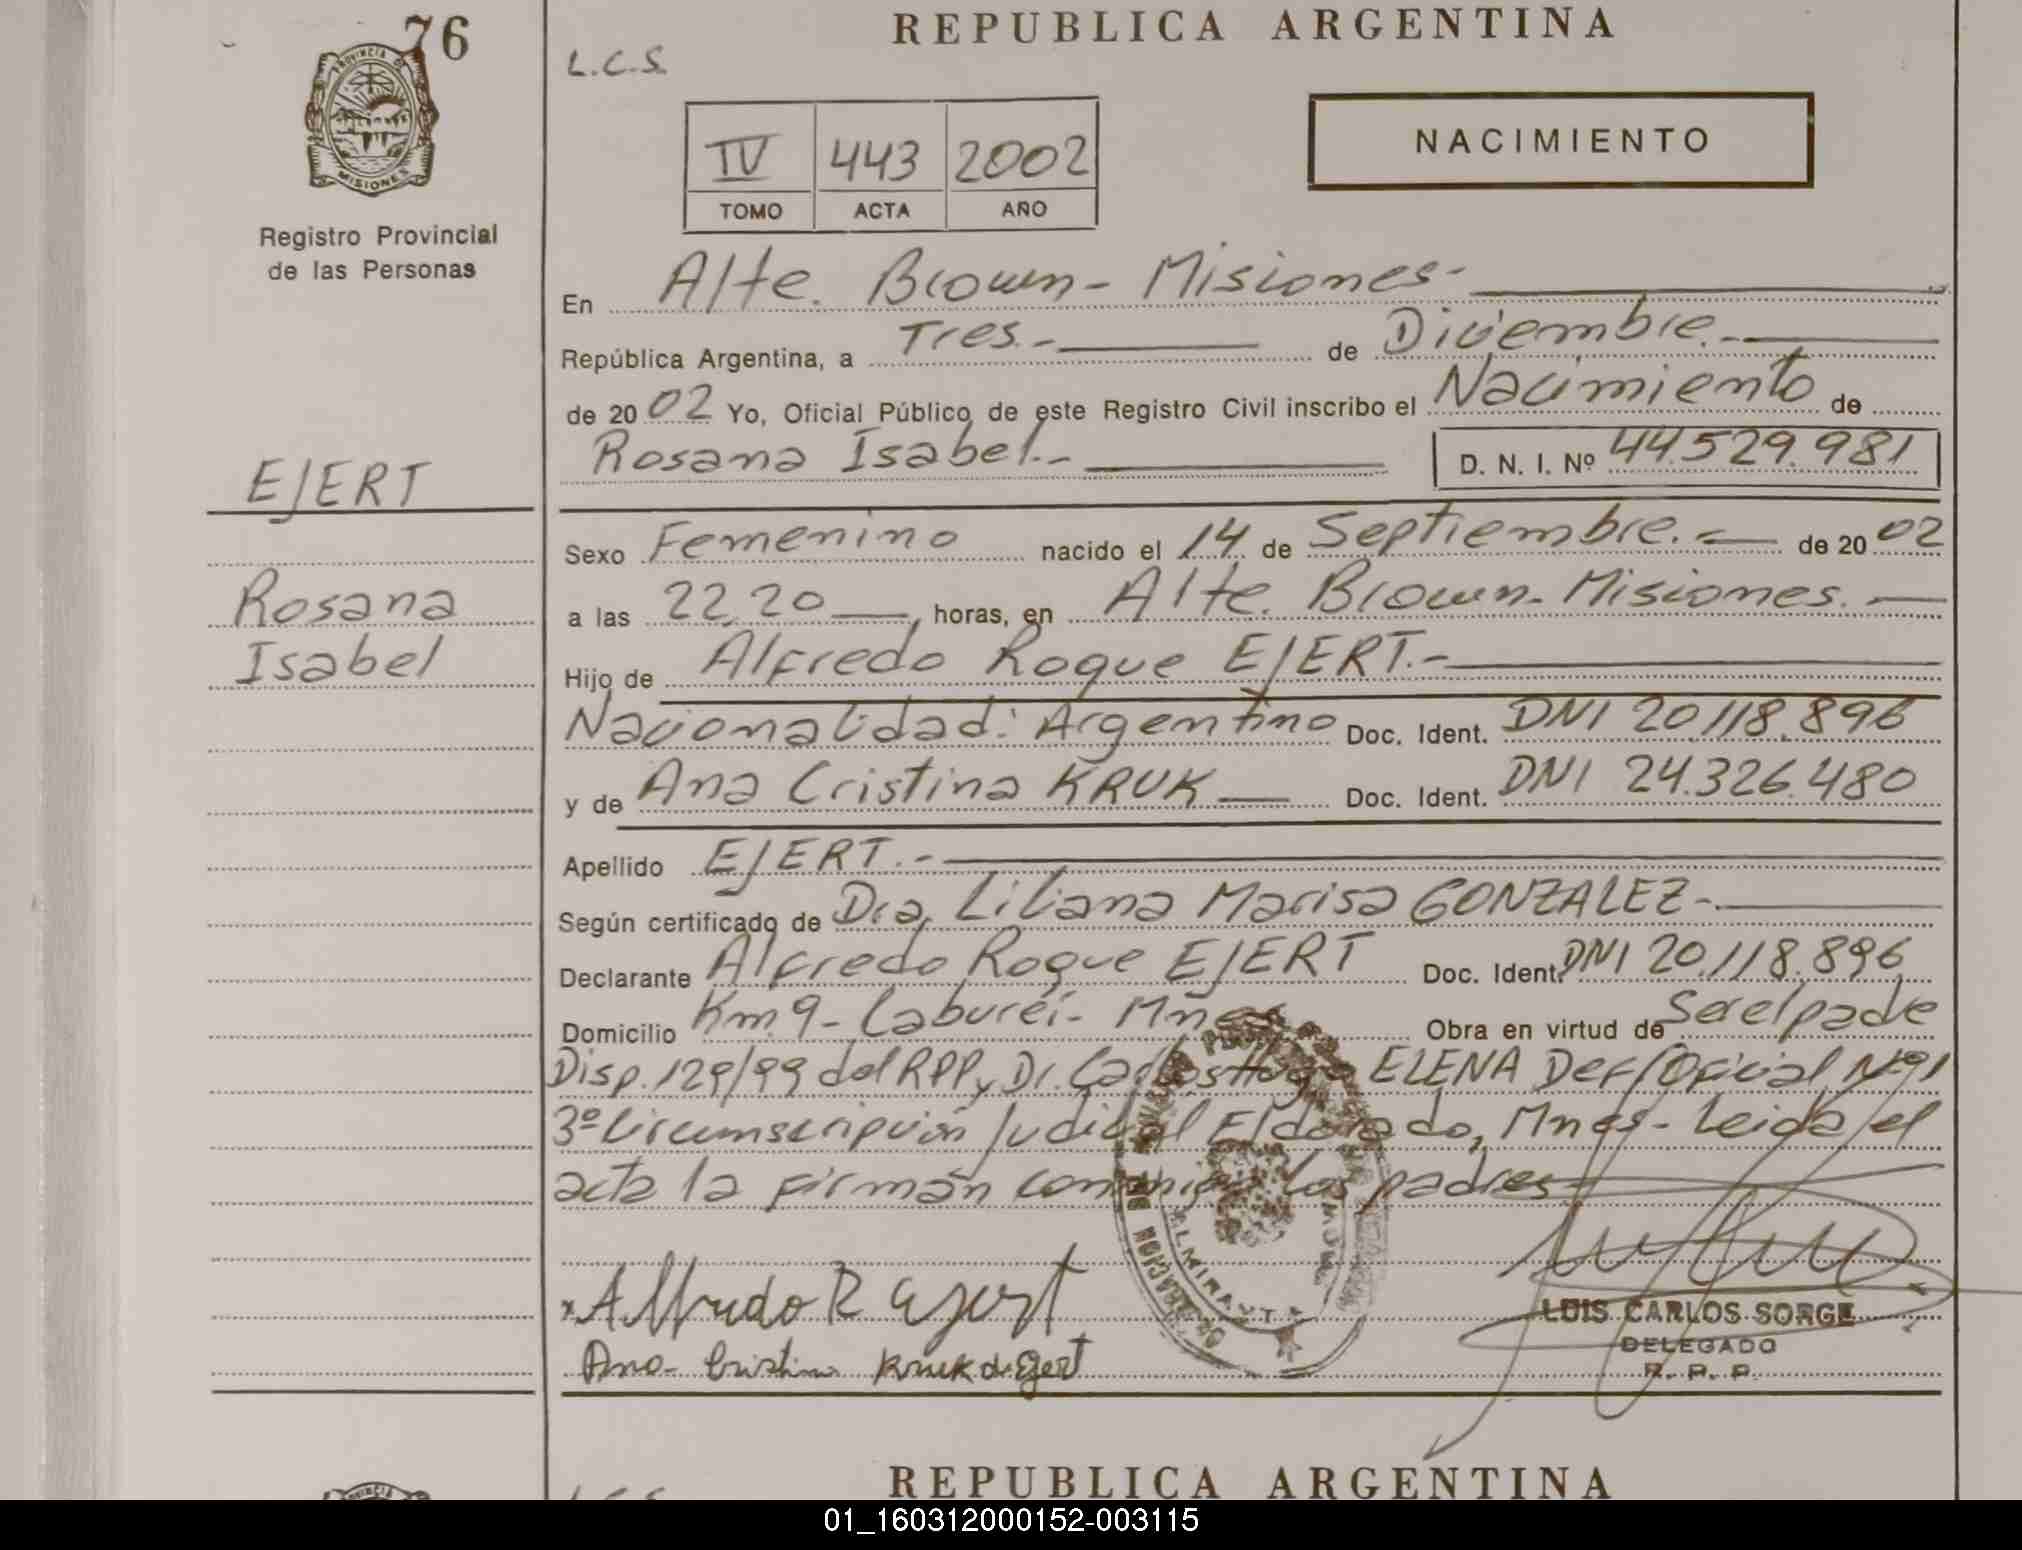 76
REPUBLICA ARGENTINA
L.C.S.
PROVINCIA DE
MISIONES
Registro Provincial
de las Personas
NACIMIENTO
IV 443 2002
TOMO ACTA AÑO
En Alte. Brown - Misiones -
República Argentina, a Tres.- de Diciembre.-
de 2002 Yo, Oficial Público de este Registro Civil inscribo el Nacimiento de
Rosana Isabel.- D. N. I. Nº 44.529.981
EJERT
Rosana
Isabel
Sexo Femenino nacido el 14 de Septiembre.- de 2002
a las 22,20 horas, en Alte. Brown - Misiones.-
Hijo de Alfredo Roque EJERT.-
Nacionalidad: Argentino Doc. Ident. DNI 20.118.896
y de Ana Cristina KRUK Doc. Ident. DNI 24.326.480
Apellido EJERT.-
Según certificado de Dra, Liliana Marisa GONZALEZ -
Declarante Alfredo Roque EJERT Doc. Ident. DNI 20.118.896
Domicilio Km. 9 - Caburei - Mnes Obra en virtud de
Disp. 129/99 del RPP y Dr. Carlos Hugo ELENA Def/Oficial Nº 1
3º Circumscripción Judicial Eldorado, Mnes - Leida el
acta la firmán conmigo los padres -
x Alfredo R Ejert
Ana Cristina Kruk de Ejert
ALMIRANTE
LUIS CARLOS SORGE
DELEGADO
R. P. P.
REPUBLICA ARGENTINA
01_160312000152-003115